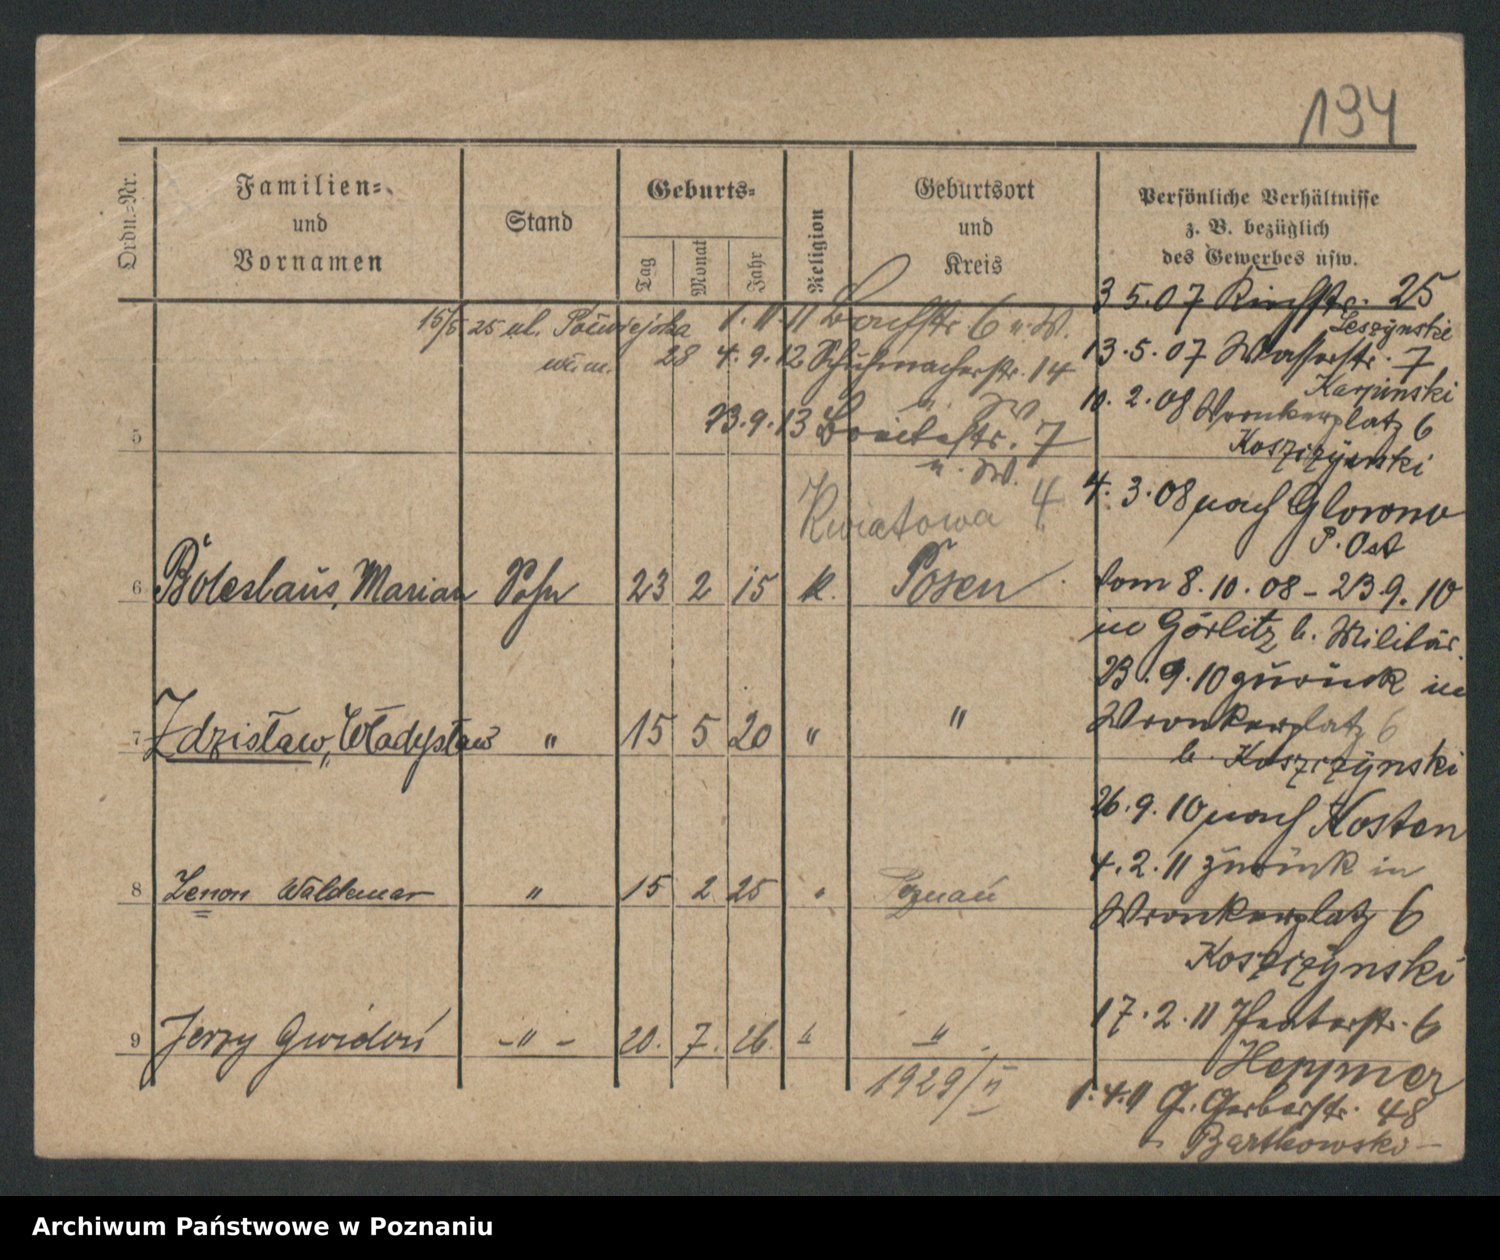 194
Ordn.=Nr.
Familien=
und
Vornamen
Stand
Geburts=
Tag
Monat
Jahr
Religion
Geburtsort
und
Kreis
Persönliche Verhältnisse
z. B. bezüglich
des Gewerbes usw.
3 5.07 Kirchstr. 25
Leszynski
13.5.07 Wasserstr. 7
Karpinski
10.2.08 Wronkerplatz 6
Koszczynski
4.3.08 nach Glowno
P. Ost
vom 8.10.08 - 23.9.10
in Görlitz b. Militär.
23.9.10 zurück in
Wronkerplatz 6
b. Koszczynski
26.9.10 nach Kosten
4.2.11 zurück in
Wronkerplatz 6
Koszczynski
17.2.11 Theaterstr. 6
Heppner
1.4.11 G. Gerberstr. 48
Bartkowski
15/5 25 ul. Półwiejska
28
1.11.11 Bachstr 6 u. W.
4.9.12 Schuhmacherstr. 14
u. W
23.9.13 Breitestr. 7
u. W.
Kwiatowa 4
5
6 Boleslaus, Marian Sohn 23 2 15 k. Posen
7 Zdzisław, Władysław " 15 5 20 " "
8 Zenon Waldemar " 15 2 25 " Poznań
9 Jerzy Gwidon -"- 20. 7. 26. " "
1929/II
Archiwum Państwowe w Poznaniu